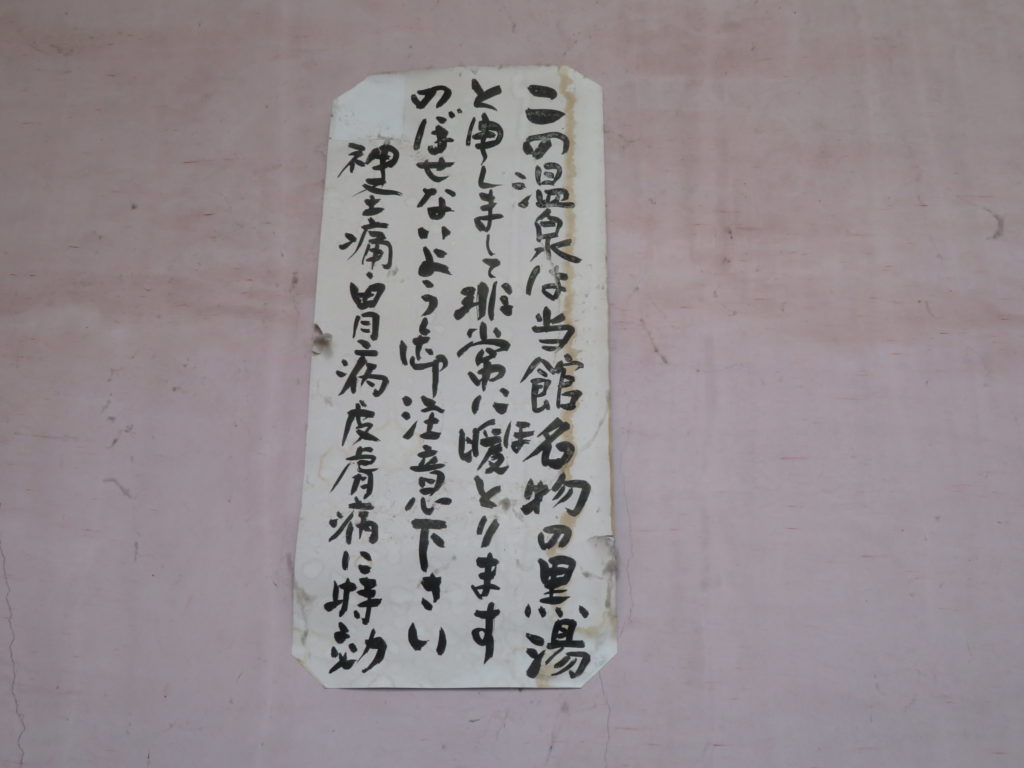 この温泉は当館名物の黒湯
と申しまして非常に暖とります
のぼせないよう御注意下さい
神圣痛・胃病皮膚病に特効